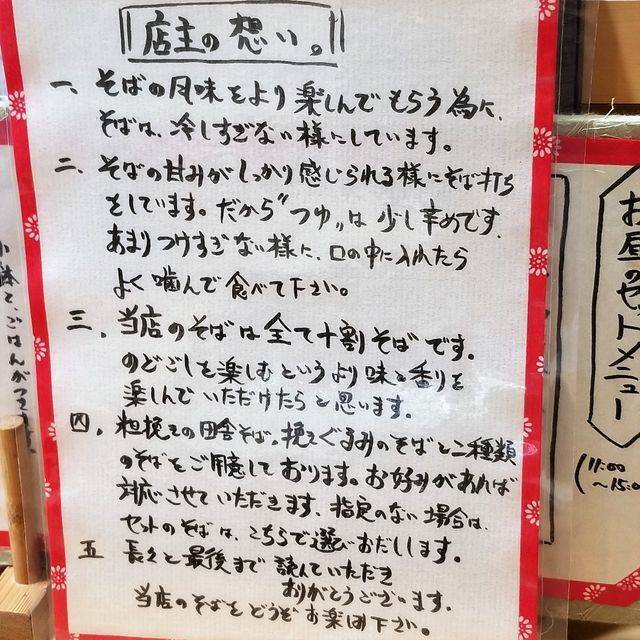 店主の想い。
一、そばの風味をより楽しんでもらう為に、
そばは、冷しすぎない様にしています。
二、そばの甘みがしっかり感じられる様にそば打ち
をしています。だから"つゆ"は少し辛めです。
あまりつけすぎない様に、口の中に入れたら
よく噛んで食べて下さい。
三、当店のそばは全て十割そばです。
のどごしを楽しむというより味と香りを
楽しんでいただけたらと思います。
四、粗挽きの田舎そば、挽きぐるみのそばと二種類
のそばをご用意しております。お好みがあれば
対応させていただきます。指定のない場合は、
セットのそばは、こちらで選びおだしします。
五 長々と最後まで読んでいただき
ありがとうございます。
当店のそばをどうぞお楽み下さい。
小鉢と、ごはんがつき
お昼のセットメニュー
(11:00
～15:0